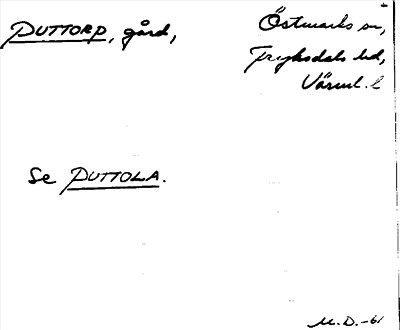 PUTTORP, gård,
Östmarks sn,
Fryksdals hd,
Värml. l
Se PUTTOLA.
M.D.-61